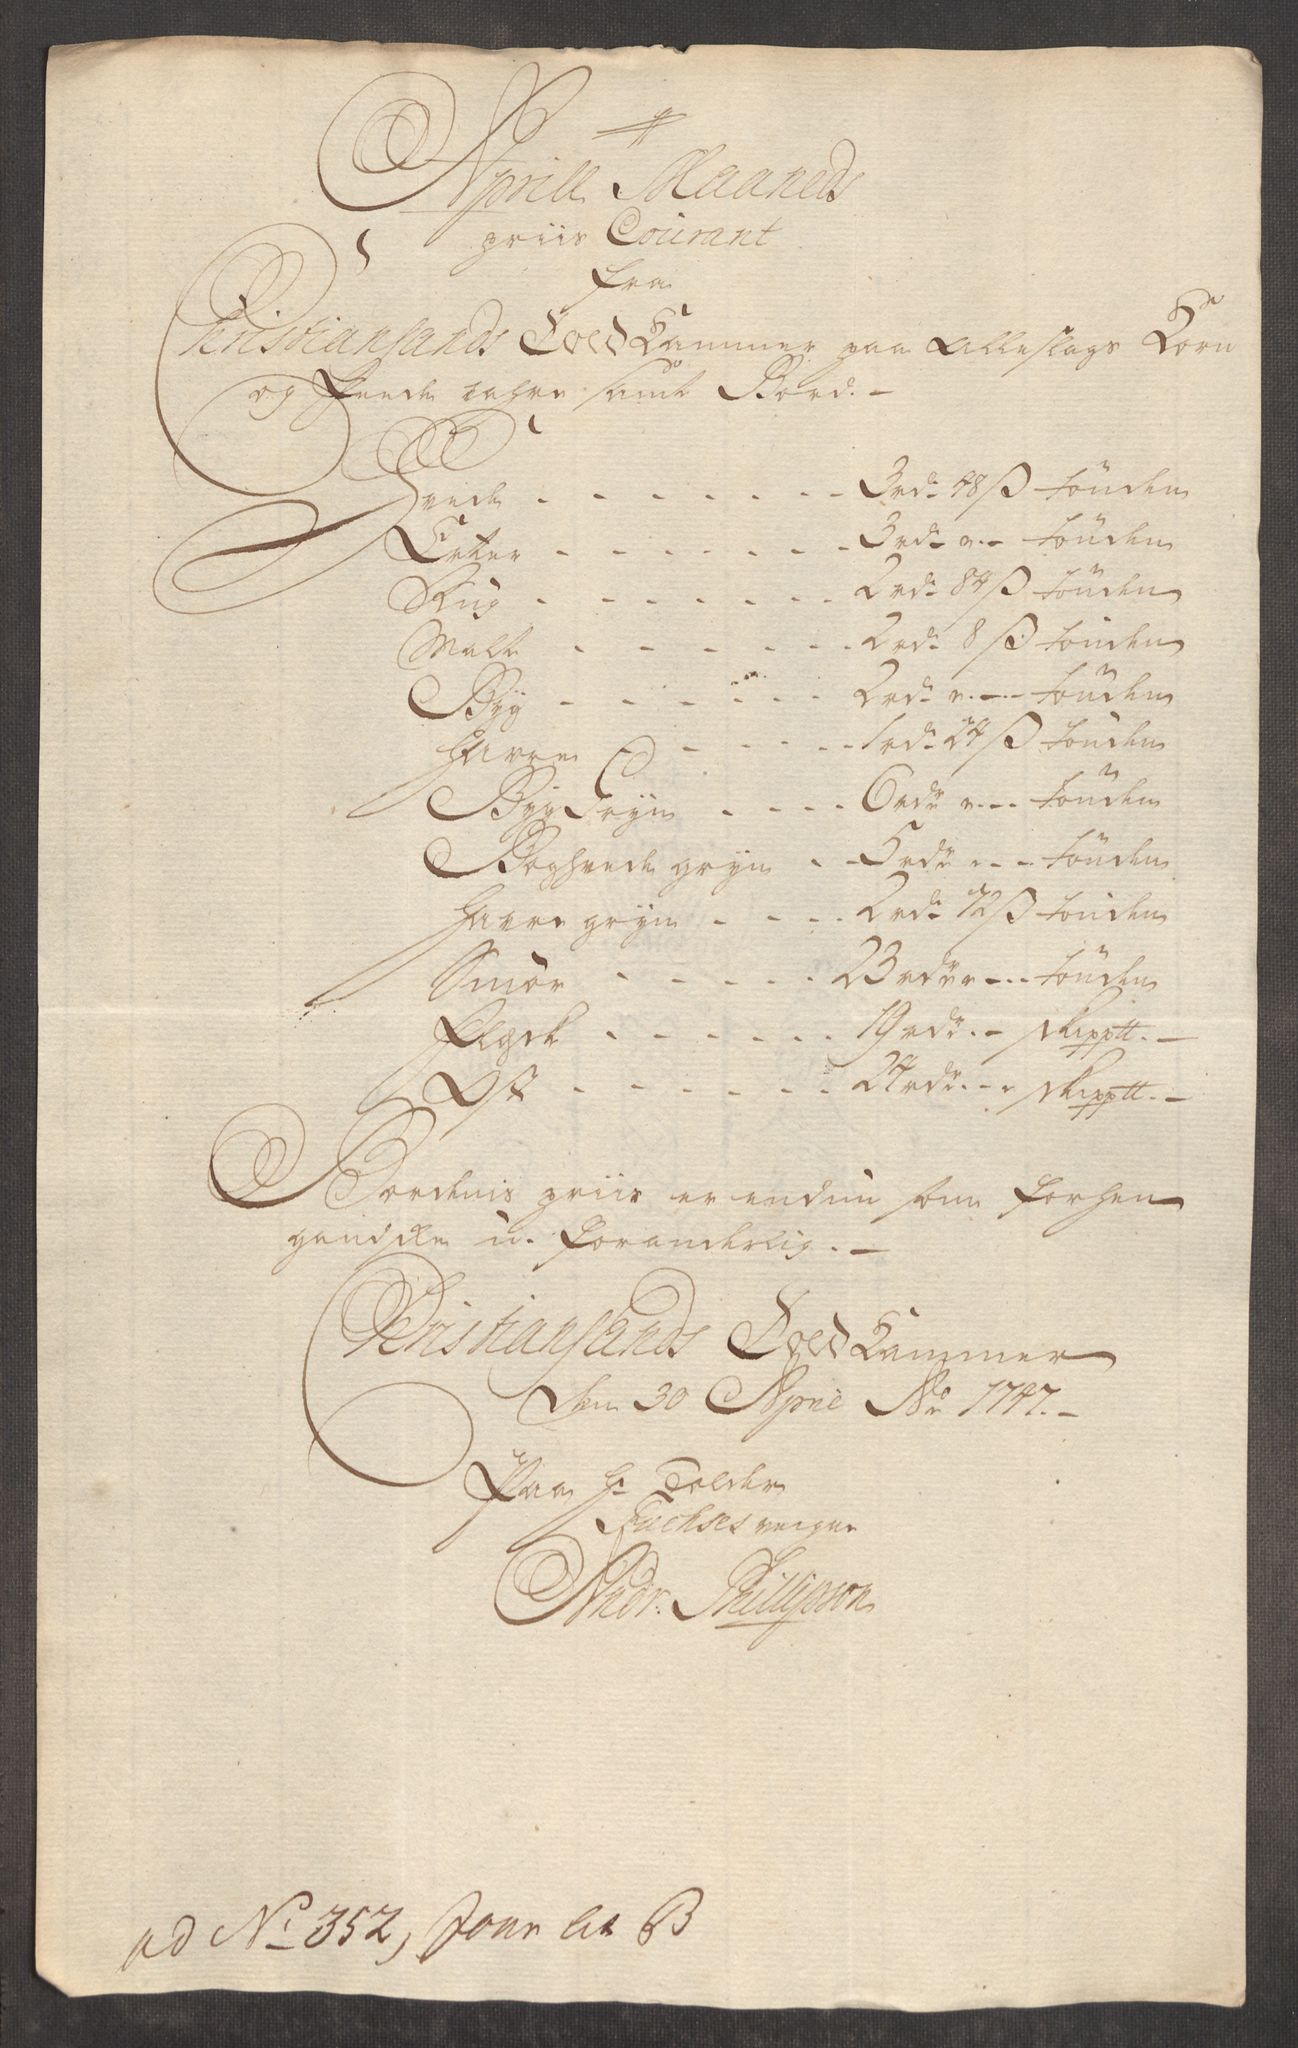 Aprill Maaneds
priis Courant
fra
Christiansands Told Kammer paa Alleslags Korn
og Feede vahre samt Bord. -
Hvede - - - - - - - 3 rd. 48 ß Tønden
Erter - - - - - - - 3 rd. " - - Tønden
Rug - - - - - - - 2 rd. 84 ß Tønden
Malt - - - - - - 2 rd. 8 ß Tønden
Byg - - - - - - 2 rd. " - - Tønden
Havre - - - - - 1 rd. 24 ß Tønden
Byg Gryn - - - - 6 rdr " - - Tønden
Boghvede gryn - - 5 rdr " - - Tønden
Havre gryn - - - - 2 rd. 72 ß Tønden
Smör - - - - - 23 rdr " - - Tønden
Flesk - - - - - - 19 rdr. - Skippt. -
Ost - - - - - - 24 rdr. - - Skippt. -
Bordenis priis er endnu som forhen
u-foranderlig. -
Christiansands Told Kammer
den 30 April Ao 1747. -
Paa Hr Tolder
Fuchses vegne
Andr. Phillipson
ad No 352, Jour Lit B